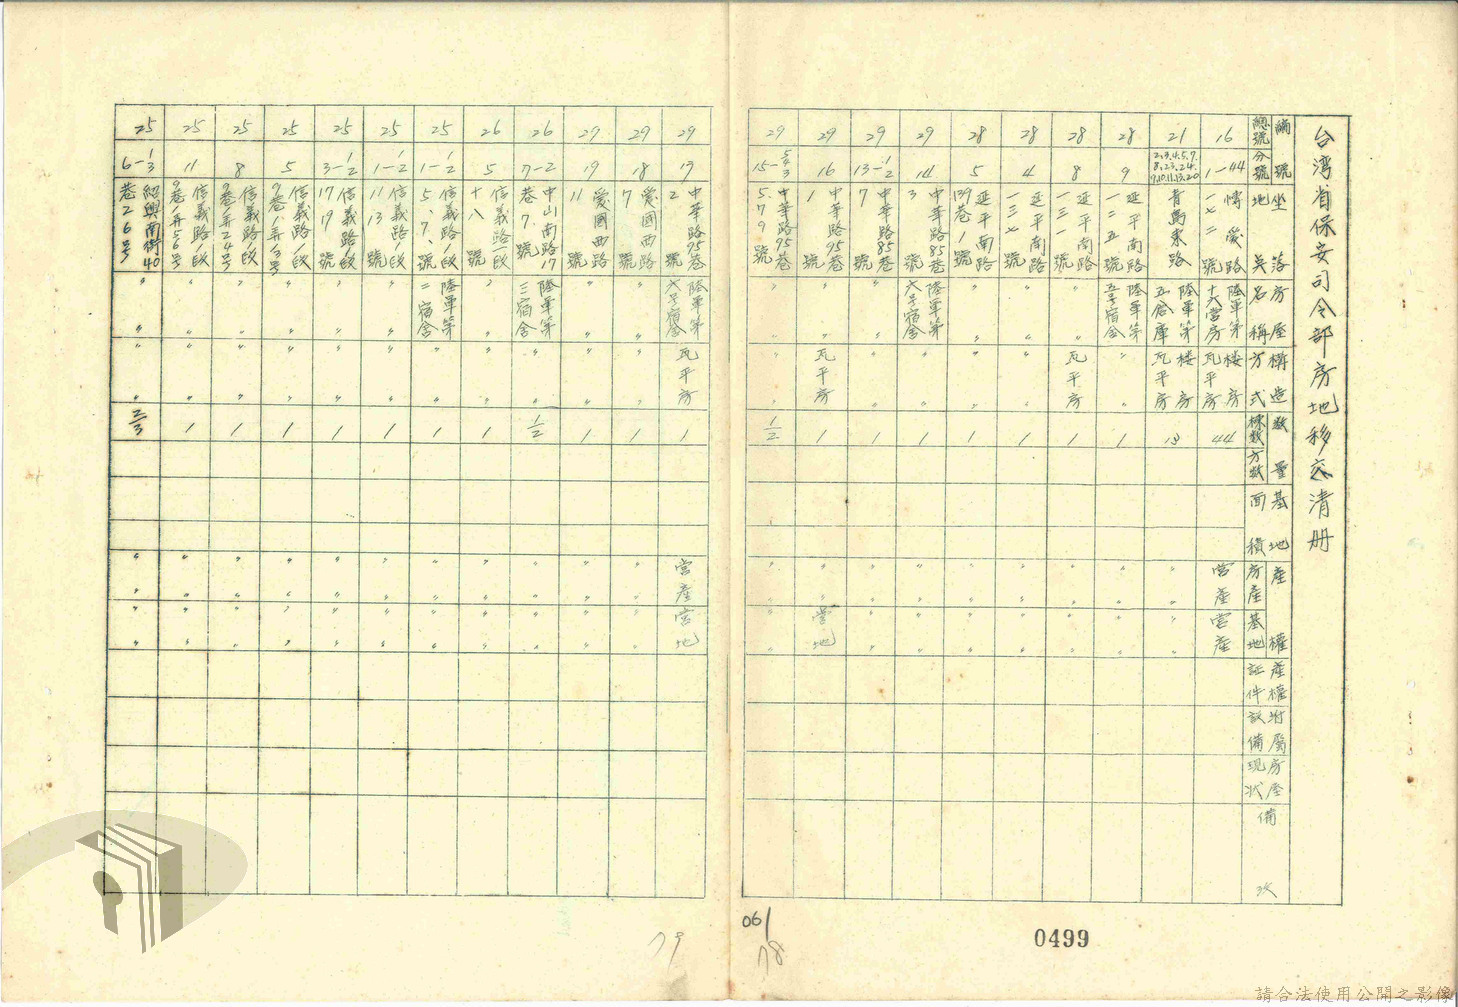 台湾省保安司令部房地移交清册
編號 總號 分號
坐落地吳
房屋名稱
構造方式
數量 棟數 方數
基地面積
產權 房產 基地
產權証件
附屬設備
房屋現狀
備
16 1-44 愽愛路一七二號 陸軍第十六営房 楼房瓦平房 44 営產 営產
21 2.3.4.5.7. 8.23.24. 9.10.11.13.20 青島東路 陸軍第五倉庫 楼房瓦平房 13 〃 〃
28 9 延平南路一二五號 陸軍第五号宿舍 〃 1 〃 〃
28 8 延平南路一三一號 〃 瓦平房 1 〃 〃
28 4 延平南路一三七號 〃 〃 1 〃 〃
28 5 延平南路139巷1號 〃 〃 1 〃 〃
29 14 中華路85巷3號 陸軍第六号宿舍 〃 1 〃 〃
29 13-1/2 中華路85巷7號 〃 〃 1 〃 〃
29 16 中華路95巷1號 〃 瓦平房 1 〃 営地
29 中華路95巷5.7.9號 〃 〃 1/2 〃 〃
29 17 中華路95巷2號 陸軍第六号宿舍 瓦平房 1 営產 営地
29 18 愛國西路7號 〃 〃 1 〃 〃
29 19 愛國西路11號 〃 〃 1 〃 〃
26 7-2 中山南路17巷7號 陸軍第三宿舍 〃 1/2 〃 〃
26 5 信義路一段十八號 〃 〃 1 〃 〃
25 1-1/2 信義路1段5、7、號 陸軍第二宿舍 〃 1 〃 〃
25 1-1/2 信義路1段11 13號 〃 〃 1 〃 〃
25 3-1/2 信義路1段17 19號 〃 〃 1 〃 〃
25 5 信義路1段9巷1弄3号 〃 〃 1 〃 〃
25 8 信義路1段9巷1弄24号 〃 〃 1 〃 〃
25 11 信義路1段9巷1弄56号 〃 〃 1 〃 〃
25 6-1/3 紹興南街40巷26号 〃 〃 2/3 〃 〃
061
78
79
0499
請合法使用公開之影像